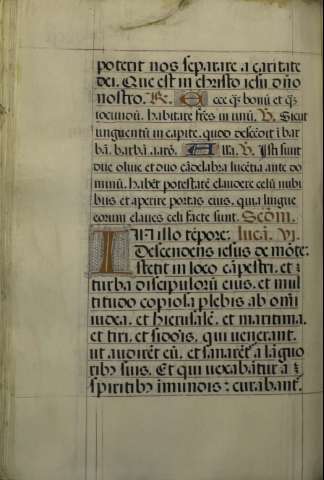 poterit nos separare a caritate
dei. Que est in christo iesu dño
nostro. R. Ecce qz bonũ et qz
iocundũ. habitare frēs in unũ. V. Sicut
unguentũ in capite. quod descēdit ĩ bar
bã. barbã aarõ. Alla. V. Isti sunt
due olive et duo cãdelabra lucẽtia ante do
minũ. habẽt potestatẽ claudere celũ nubi
bus et aperire portas eius. quia lingue
eorum claves celi facte sunt. Scdm.
IN illo tẽpore: lucã. vj.
Descendens iesus de mõte:
stetit in loco cãpestri. et :
turba discipulorũ eius. et mul
titudo copiosa plebis ab omĩ
iudea. et hierusalẽ. et maritima.
et tiri. et sidõis. qui venerant.
ut audirẽt eũ. et sanarẽt a lãguo
ribz suis. Et qui vexabãtur a :
spiritibz ĩmundis : curabant.